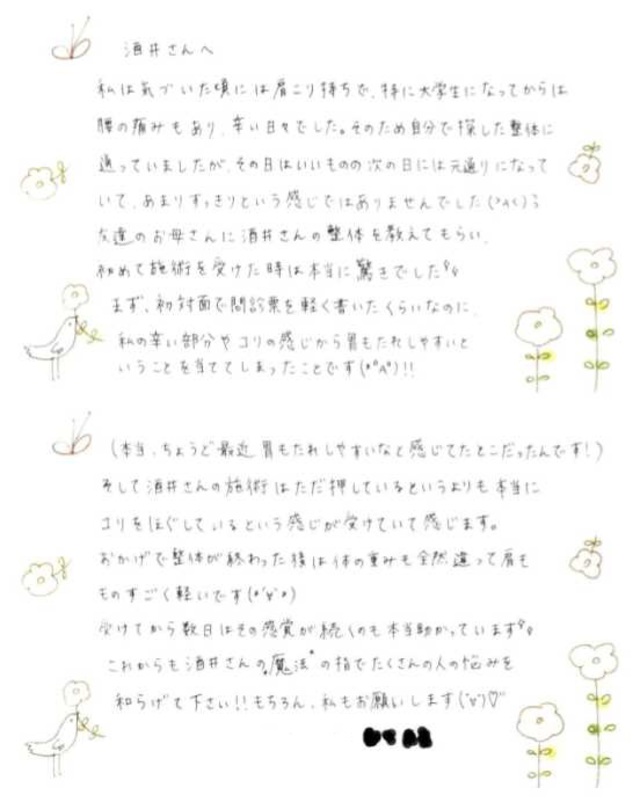 酒井さんへ
私は気づいた頃には肩こり持ちで、特に大学生になってからは
腰の痛みもあり、辛い日々でした。そのため自分で探した整体に
通っていましたが、その日はいいものの次の日には元通りになって
いて、あまりすっきりという感じではありませんでした(>A<)
友達のお母さんに酒井さんの整体を教えてもらい、
初めて施術を受けた時は本当に驚きでした
まず、初対面で問診票を軽く書いたくらいなのに、
私の辛い部分やコリの感じから胃もたれしやすいと
いうことを当ててしまったことです(*°A°)!!
(本当、ちょうど最近胃もたれしやすいなと感じてたとこだったんです!)
そして酒井さんの施術はただ押しているというよりも本当に
コリをほぐしているという感じが受けていて感じます。
おかげで整体が終わった後は体の重みも全然違って肩も
ものすごく軽いです(*'∀'*)
受けてから数日はその感覚が続くのも本当助かっています
これからも酒井さんの"魔法"の指でたくさんの人の悩みを
和らげて下さい!!もちろん、私もお願いします('v')♡